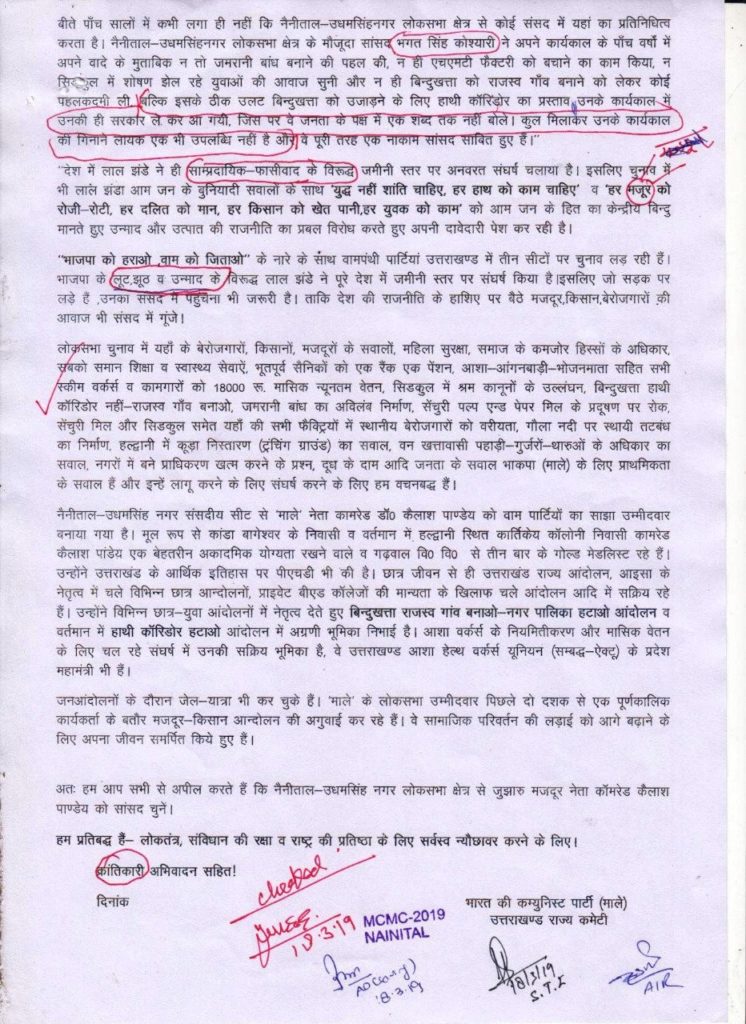 बीते पाँच सालों में कभी लगा ही नहीं कि नैनीताल–उधमसिंहनगर लोकसभा क्षेत्र से कोई संसद में यहां का प्रतिनिधित्व
करता है। नैनीताल–उधमसिंहनगर लोकसभा क्षेत्र के मौजूदा सांसद भगत सिंह कोश्यारी ने अपने कार्यकाल के पाँच वर्षों में
अपने वादे के मुताबिक न तो जमरानी बांध बनाने की पहल की, न ही एचएमटी फैक्टरी को बचाने का काम किया, न
सिडकुल में शोषण झेल रहे युवाओं की आवाज सुनी और न ही बिन्दुखत्ता को राजस्व गाँव बनाने को लेकर कोई
पहलकदमी ली, बल्कि इसके ठीक उलट बिन्दुखत्ता को उजाड़ने के लिए हाथी कॉरिडोर का प्रस्ताव उनके कार्यकाल में
उनकी ही सरकार ले कर आ गयी, जिस पर वे जनता के पक्ष में एक शब्द तक नहीं बोले। कुल मिलाकर उनके कार्यकाल
की गिनाने लायक एक भी उपलब्धि नहीं है और वे पूरी तरह एक नाकाम सांसद साबित हुए हैं।"
"देश में लाल झंडे ने ही साम्प्रदायिक–फासीवाद के विरूद्ध जमीनी स्तर पर अनवरत संघर्ष चलाया है। इसलिए चुनाव में
भी लाल झंडा आम जन के बुनियादी सवालों के साथ 'युद्ध नहीं शांति चाहिए, हर हाथ को काम चाहिए' व 'हर मजूर को
रोजी–रोटी, हर दलित को मान, हर किसान को खेत पानी,हर युवक को काम' को आम जन के हित का केन्द्रीय बिन्दु
मानते हुए उन्माद और उत्पात की राजनीति का प्रबल विरोध करते हुए अपनी दावेदारी पेश कर रही है।
"भाजपा को हराओ ,वाम को जिताओ" के नारे के साथ वामपंथी पार्टियां उत्तराखण्ड में तीन सीटों पर चुनाव लड़ रही हैं।
भाजपा के लूट,झूठ व उन्माद के विरूद्ध लाल झंडे ने पूरे देश में जमीनी स्तर पर संघर्ष किया है।इसलिए जो सड़क पर
लड़े हैं ,उनका संसद में पहुंचना भी जरूरी है। ताकि देश की राजनीति के हाशिए पर बैठे मजदूर,किसान,बेरोजगारों की
आवाज भी संसद में गूंजे।
लोकसभा चुनाव में यहाँ के बेरोजगारों, किसानों, मजदूरों के सवालों, महिला सुरक्षा, समाज के कमजोर हिस्सों के अधिकार,
सबको समान शिक्षा व स्वास्थ्य सेवाऐं, भूतपूर्व सैनिकों को एक रैंक एक पेंशन, आशा–आंगनबाड़ी–भोजनमाता सहित सभी
स्कीम वर्कर्स व कामगारों को 18000 रू. मासिक न्यूनतम वेतन, सिडकुल में श्रम कानूनों के उल्लंघन, बिन्दुखत्ता हाथी
कॉरिडोर नहीं–राजस्व गाँव बनाओ, जमरानी बांध का अविलंब निर्माण, सेंचुरी पल्प एन्ड पेपर मिल के प्रदूषण पर रोक,
सेंचुरी मिल और सिडकुल समेत यहाँ की सभी फैक्ट्रियों में स्थानीय बेरोजगारों को वरीयता, गौला नदी पर स्थायी तटबंध
का निर्माण, हल्द्वानी में कूड़ा निस्तारण (ट्रंचिंग ग्राउंड) का सवाल, वन खत्तावासी पहाड़ी–गुर्जरों–थारुओं के अधिकार का
सवाल, नगरों में बने प्राधिकरण खत्म करने के प्रश्न, दूध के दाम आदि जनता के सवाल भाकपा (माले) के लिए प्राथमिकता
के सवाल हैं और इन्हें लागू करने के लिए संघर्ष करने के लिए हम वचनबद्ध हैं।
नैनीताल–उधमसिंह नगर संसदीय सीट से 'माले' नेता कामरेड डॉ0 कैलाश पाण्डेय को वाम पार्टियों का साझा उम्मीदवार
बनाया गया है। मूल रूप से कांडा बागेश्वर के निवासी व वर्तमान में हल्द्वानी स्थित कार्तिकेय कॉलोनी निवासी कामरेड
कैलाश पांडेय एक बेहतरीन अकादमिक योग्यता रखने वाले व गढ़वाल वि0 वि0 से तीन बार के गोल्ड मेडलिस्ट रहे हैं।
उन्होंने उत्तराखंड के आर्थिक इतिहास पर पीएचडी भी की है। छात्र जीवन से ही उत्तराखंड राज्य आंदोलन, आइसा के
नेतृत्व में चले विभिन्न छात्र आन्दोलनों, प्राइवेट बीएड कॉलेजों की मान्यता के खिलाफ चले आंदोलन आदि में सक्रिय रहे
हैं। उन्होंने विभिन्न छात्र–युवा आंदोलनों में नेतृत्व देते हुए बिन्दुखत्ता राजस्व गांव बनाओ–नगर पालिका हटाओ आंदोलन व
वर्तमान में हाथी कॉरिडोर हटाओ आंदोलन में अग्रणी भूमिका निभाई है। आशा वर्कर्स के नियमितीकरण और मासिक वेतन
के लिए चल रहे संघर्ष में उनकी सक्रिय भूमिका है, वे उत्तराखण्ड आशा हेल्थ वर्कर्स यूनियन (सम्बद्ध–ऐक्टू) के प्रदेश
महामंत्री भी हैं।
जनआंदोलनों के दौरान जेल–यात्रा भी कर चुके हैं। 'माले' के लोकसभा उम्मीदवार पिछले दो दशक से एक पूर्णकालिक
कार्यकर्ता के बतौर मजदूर–किसान आन्दोलन की अगुवाई कर रहे हैं। वे सामाजिक परिवर्तन की लड़ाई को आगे बढ़ाने के
लिए अपना जीवन समर्पित किये हुए हैं।
अतः हम आप सभी से अपील करते हैं कि नैनीताल–उधमसिंह नगर लोकसभा क्षेत्र से जुझारु मजदूर नेता कॉमरेड कैलाश
पाण्डेय को सांसद चुनें।
हम प्रतिबद्ध हैं– लोकतंत्र, संविधान की रक्षा व राष्ट्र की प्रतिष्ठा के लिए सर्वस्व न्यौछावर करने के लिए।
क्रांतिकारी अभिवादन सहित!
दिनांक
भारत की कम्युनिस्ट पार्टी (माले)
उत्तराखण्ड राज्य कमेटी
checked
18.3.19
MCMC-2019
NAINITAL
18.3.19
18/3/19
S.T.I
AIR